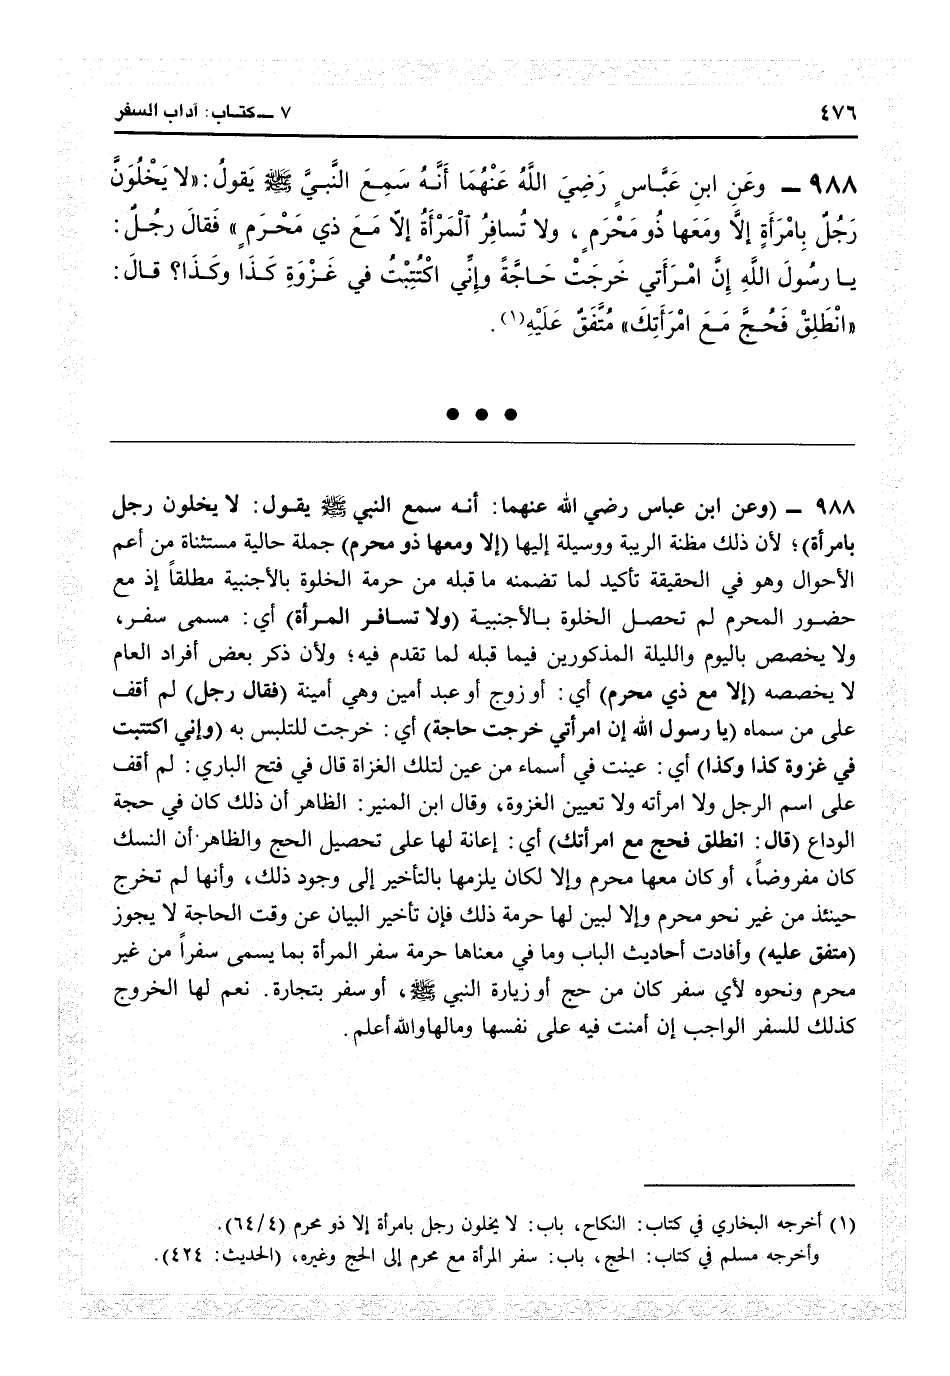 ٤٧٦
٧ ـ كتاب: آداب السفر
٩٨٨ ـ وعَنِ ابنِ عَبَّاسٍ رَضِيَ اللَّهُ عَنْهُمَا أَنَّهُ سَمِعَ النَّبِيَّ ﷺ يَقولُ: «لا يَخْلُوَنَّ
رَجُلٌ بِامْرَأَةٍ إلاَّ ومَعَها ذُو مَحْرَمٍ، ولا تُسافِرُ ٱلْمَرْأَةُ إلاّ مَعَ ذي مَحْرَمٍ» فَقالَ رجُلٌ:
يا رسُولَ اللَّهِ إنَّ امْرَأَتي خَرجَتْ حَاجَّةً وإنِّي اكْتُتِبْتُ في غَزْوَةِ كَذَا وكَذَا؟ قالَ:
«انْطَلِقْ فَحُجَّ مَعَ امْرَأَتِكَ» مُتَّفَقٌ عَلَيْهِ(١).
● ● ●
٩٨٨ ـ (وعن ابن عباس رضي الله عنهما: أنه سمع النبي ﷺ يقول: لا يخلون رجل
بامرأة)؛ لأن ذلك مظنة الريبة ووسيلة إليها (إلا ومعها ذو محرم) جملة حالية مستثناة من أعم
الأحوال وهو في الحقيقة تأكيد لما تضمنه ما قبله من حرمة الخلوة بالأجنبية مطلقاً إذ مع
حضور المحرم لم تحصل الخلوة بالأجنبية (ولا تسافر المرأة) أي: مسمى سفر،
ولا يخصص باليوم والليلة المذكورين فيما قبله لما تقدم فيه؛ ولأن ذكر بعض أفراد العام
لا يخصصه (إلا مع ذي محرم) أي: أو زوج أو عبد أمين وهي أمينة (فقال رجل) لم أقف
على من سماه (يا رسول الله إن امرأتي خرجت حاجة) أي: خرجت للتلبس به (وإني اكتتبت
في غزوة كذا وكذا) أي: عينت في أسماء من عين لتلك الغزاة قال في فتح الباري: لم أقف
على اسم الرجل ولا امرأته ولا تعيين الغزوة، وقال ابن المنير: الظاهر أن ذلك كان في حجة
الوداع (قال: انطلق فحج مع امرأتك) أي: إعانة لها على تحصيل الحج والظاهر أن النسك
كان مفروضاً، أو كان معها محرم وإلا لكان يلزمها بالتأخير إلى وجود ذلك، وأنها لم تخرج
حينئذ من غير نحو محرم وإلا لبين لها حرمة ذلك فإن تأخير البيان عن وقت الحاجة لا يجوز
(متفق عليه) وأفادت أحاديث الباب وما في معناها حرمة سفر المرأة بما يسمى سفراً من غير
محرم ونحوه لأي سفر كان من حج أو زيارة النبي ﷺ، أو سفر بتجارة. نعم لها الخروج
كذلك للسفر الواجب إن أمنت فيه على نفسها ومالها والله أعلم.
(١) أخرجه البخاري في كتاب: النكاح، باب: لا يخلون رجل بامرأة إلا ذو محرم (٦٤/٤).
وأخرجه مسلم في كتاب: الحج، باب: سفر المرأة مع محرم إلى الحج وغيره، (الحديث: ٤٢٤).